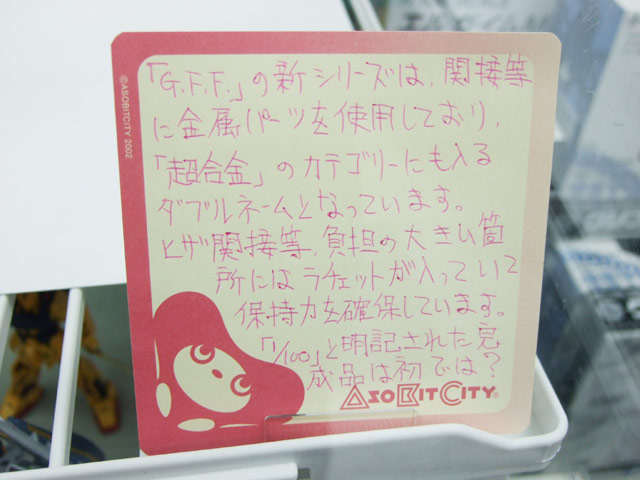 「G.F.F.」の新シリーズは、関接等
に金属パーツを使用しており、
「超合金」のカテゴリーにも入る
ダブルネームとなっています。
ヒザ関接等、負担の大きい箇
所にはラチェットが入っていて
保持力を確保しています。
「1/100」と明記された完
成品は初では?
ASOBITCITY®
©ASOBITCITY 2002